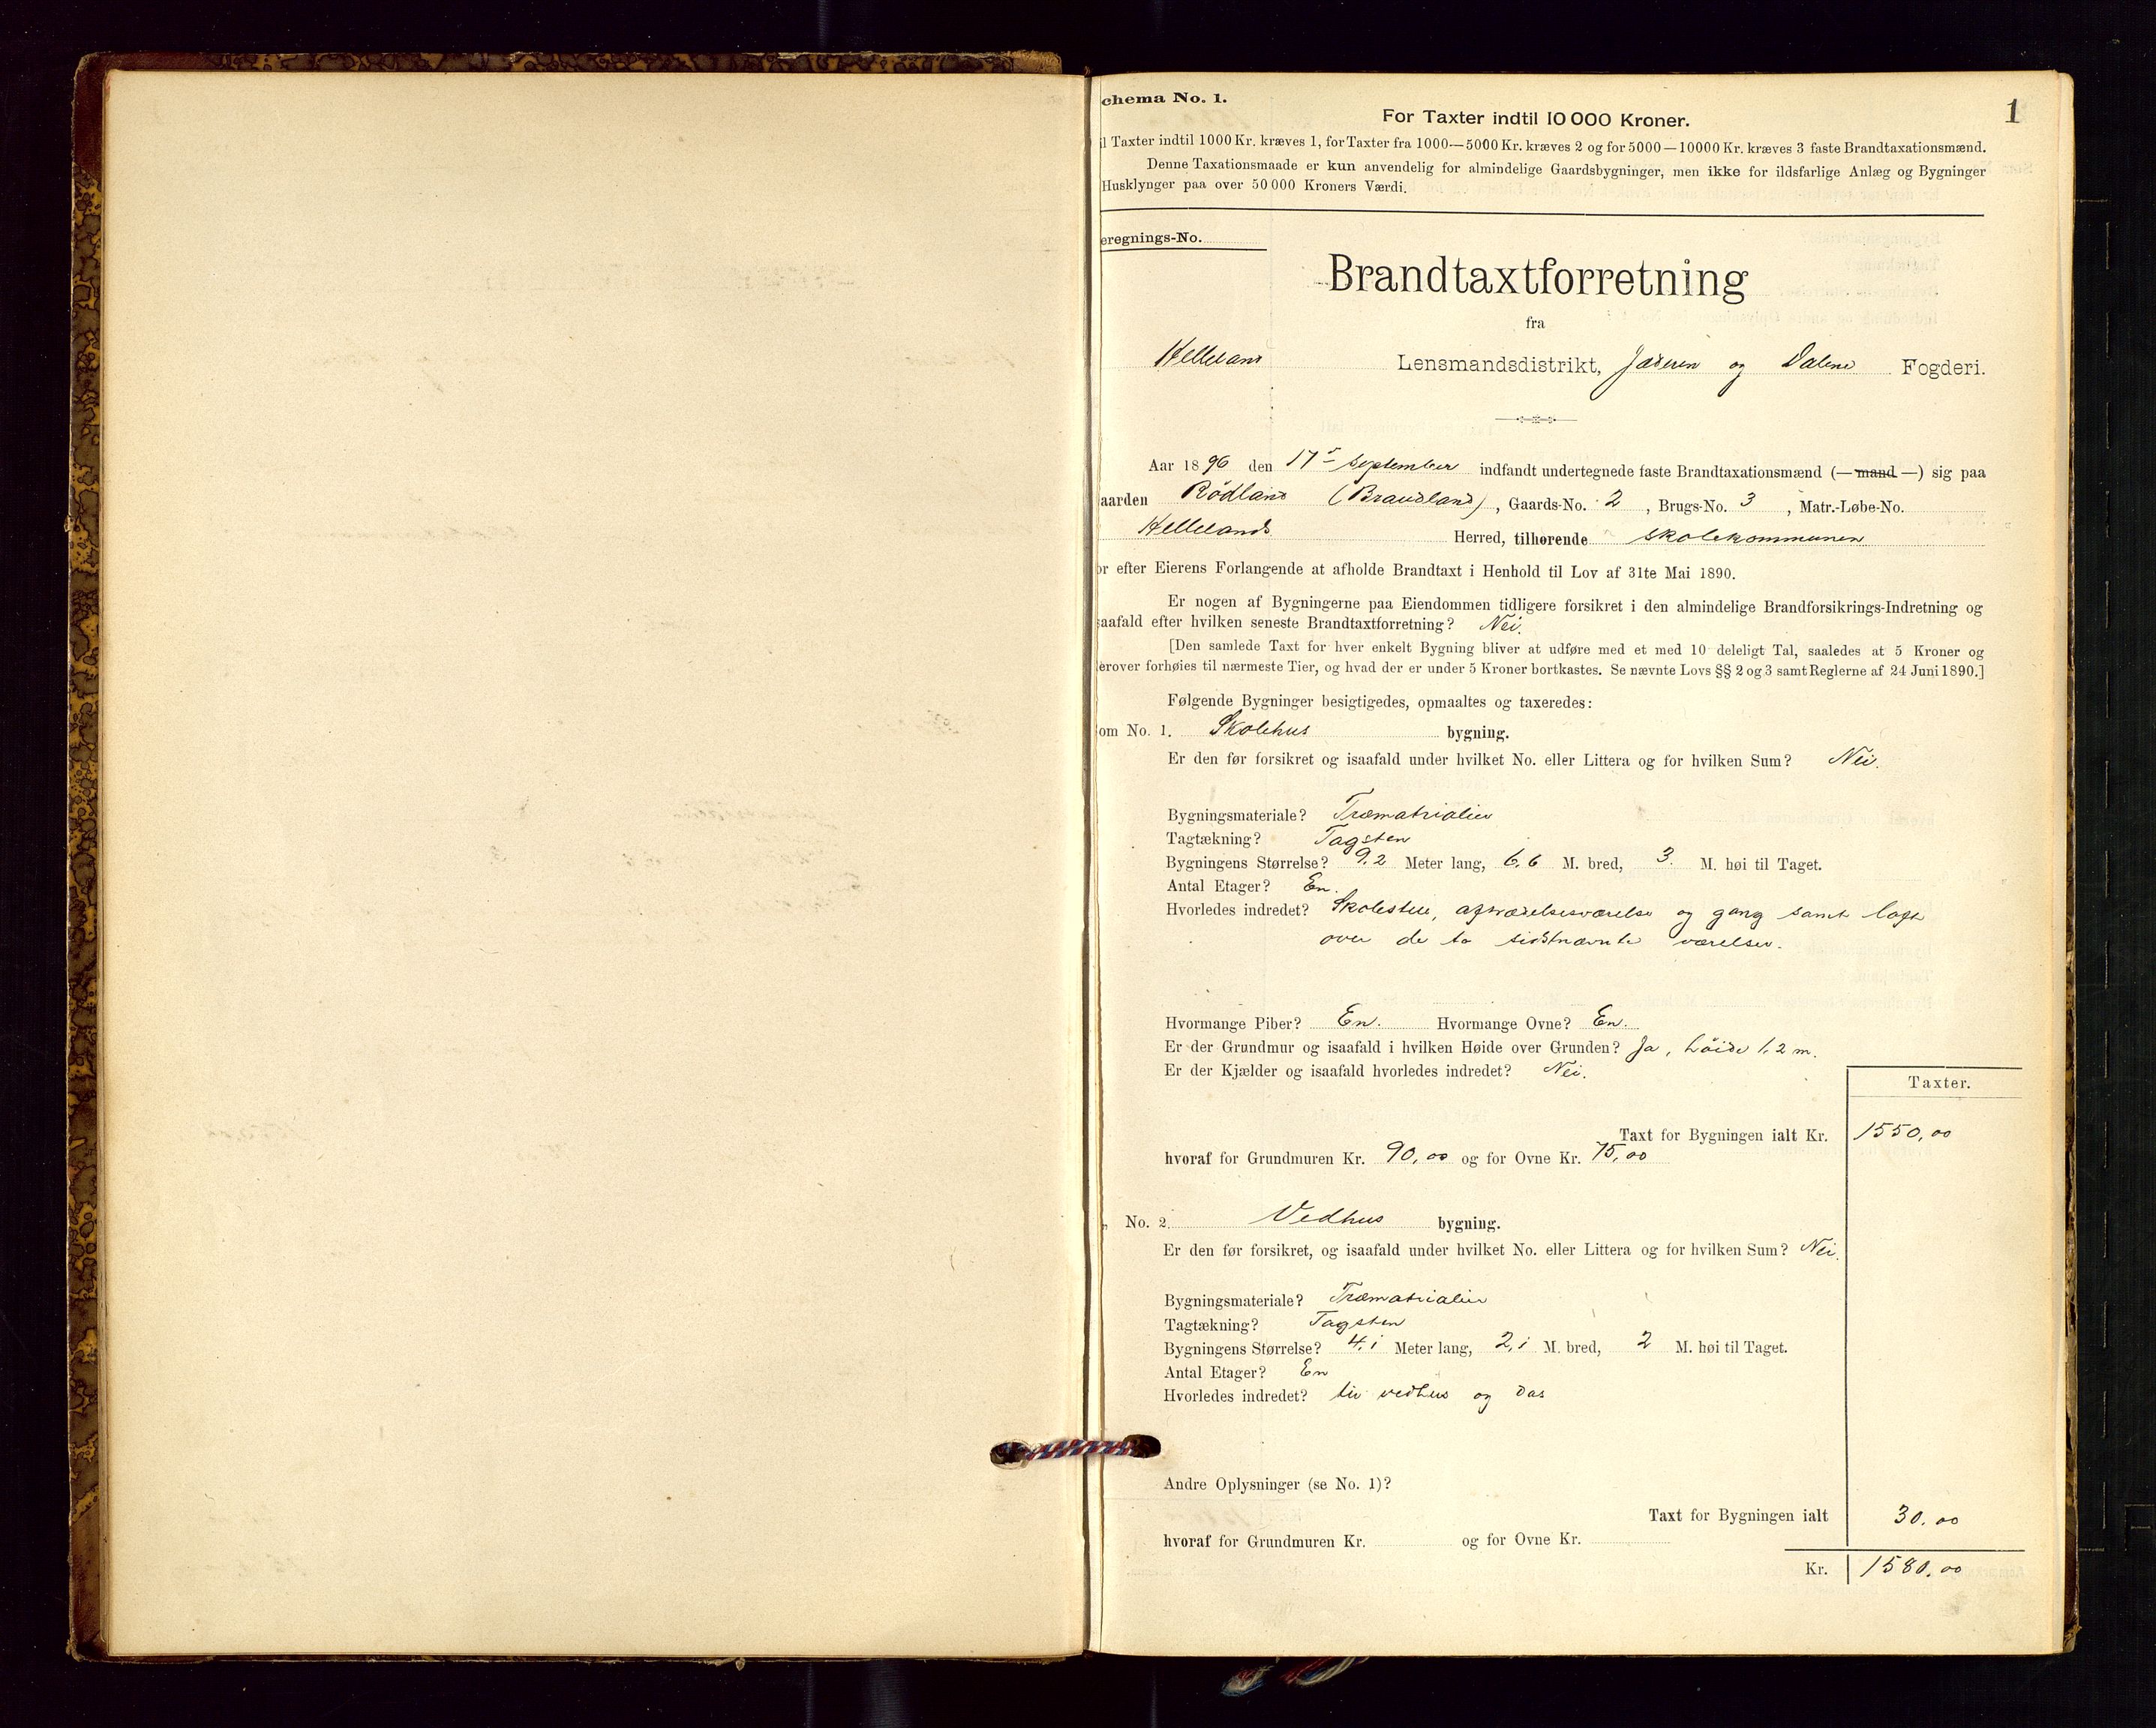 chema No. 1.
1
For Taxter indtil 10 000 Kroner.
il Taxter indtil 1000 Kr. kræves 1, for Taxter fra 1000—5000 Kr. kræves 2 og for 5000—10000 Kr. kræves 3 faste Brandtaxationsmænd.
Denne Taxationsmaade er kun anvendelig for almindelige Gaardsbygninger, men ikke for ildsfarlige Anlæg og Bygninger
Husklynger paa over 50 000 Kroners Værdi.
eregnings-No.
Brandtaxtforretning
fra
Helleland Lensmandsdistrikt, Jæderen og Dalene Fogderi.
Aar 1896 den 17de September indfandt undertegnede faste Brandtaxationsmænd (—mand—) sig paa
aarden Rødland (Braudland), Gaards-No. 2, Brugs-No. 3, Matr.-Løbe-No.
Hellelands Herred, tilhørende skolekommunen
or efter Eierens Forlangende at afholde Brandtaxt i Henhold til Lov af 31te Mai 1890.
Er nogen af Bygningerne paa Eiendommen tidligere forsikret i den almindelige Brandforsikrings-Indretning og
saafald efter hvilken seneste Brandtaxtforretning? Nei.
[Den samlede Taxt for hver enkelt Bygning bliver at udføre med et med 10 deleligt Tal, saaledes at 5 Kroner og
erover forhøies til nærmeste Tier, og hvad der er under 5 Kroner bortkastes. Se nævnte Lovs §§ 2 og 3 samt Reglerne af 24 Juni 1890.]
Følgende Bygninger besigtigedes, opmaaltes og taxeredes:
om No. 1. Skolehus bygning.
Er den før forsikret og isaafald under hvilket No. eller Littera og for hvilken Sum? Nei.
Bygningsmateriale? Træmatrialier
Tagtækning? Tagsten
Bygningens Størrelse? 9,2 Meter lang, 6,6 M. bred, 3. M. høi til Taget.
Antal Etager? En.
Hvorledes indredet? Skolestue, aftrædelsesværelse og gang samt loft
over de to sidstnævnte værelser.
Hvormange Piber? En. Hvormange Ovne? En.
Er der Grundmur og isaafald i hvilken Høide over Grunden? Ja, høide 1,2 m.
Er der Kjælder og isaafald hvorledes indredet? Nei.
Taxter.
Taxt for Bygningen ialt Kr. 1550,00
hvoraf for Grundmuren Kr. 90,00 og for Ovne Kr. 75,00
„ No. 2. Vedhus bygning.
Er den før forsikret, og isaafald under hvilket No. eller Littera og for hvilken Sum? Nei.
Bygningsmateriale? Træmatrialier
Tagtækning? Tagsten
Bygningens Størrelse? 4,1 Meter lang, 2,1 M. bred, 2 M. høi til Taget.
Antal Etager? En
Hvorledes indredet? til vedhus og das
Andre Oplysninger (se No. 1)?
Taxt for Bygningen ialt 30,00
hvoraf for Grundmuren Kr. og for Ovne Kr.
Kr. 1580,00